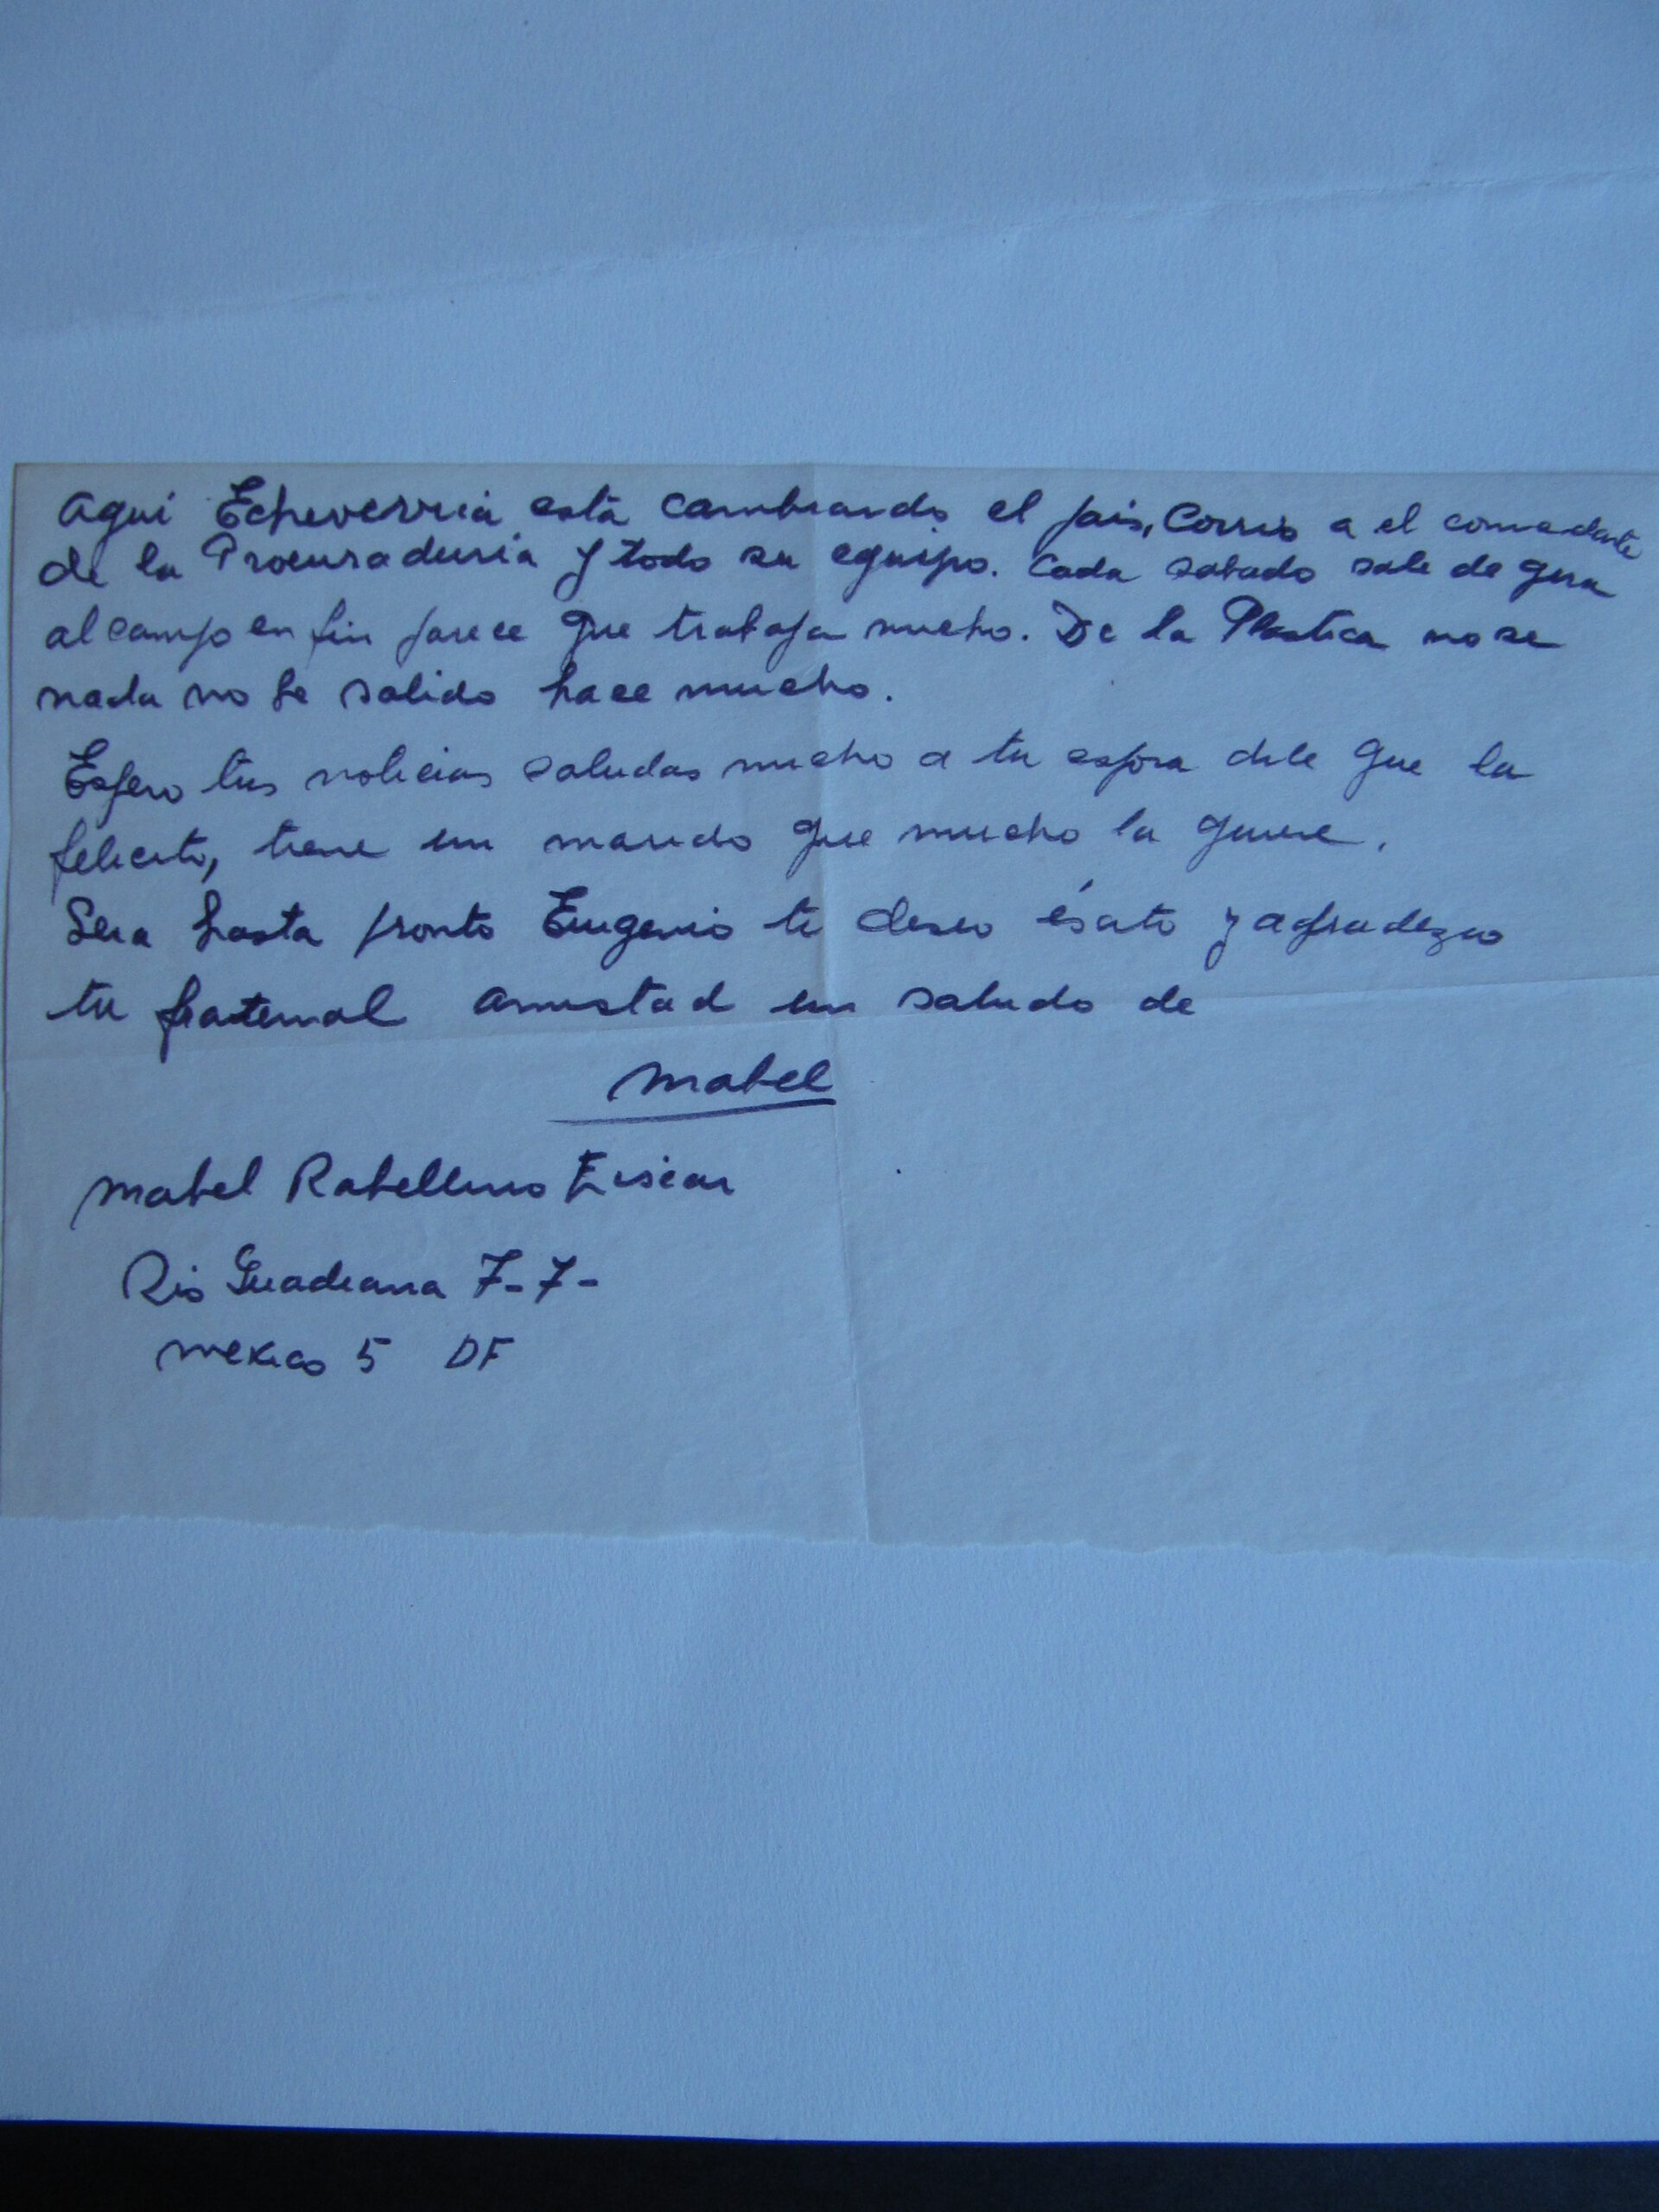 Aqui Echeverria está cambiando el pais, Corrio a el comadante
de la Procuraduria y todo su equipo. Cada sabado sale de gira
al campo en fin parece que trabaja mucho. De la Plastica no se
nada no he salido hace mucho.
Espero tus noticias saludas mucho a tu esposa dile que la
felicito, tiene un marido que mucho la quiere.
Sera hasta pronto Eugenio te deseo éxito y agradezco
tu fraternal amistad un saludo de
Mabel
Mabel Rabellino
Rio Guadiana 7-7-
Mexico 5 DF